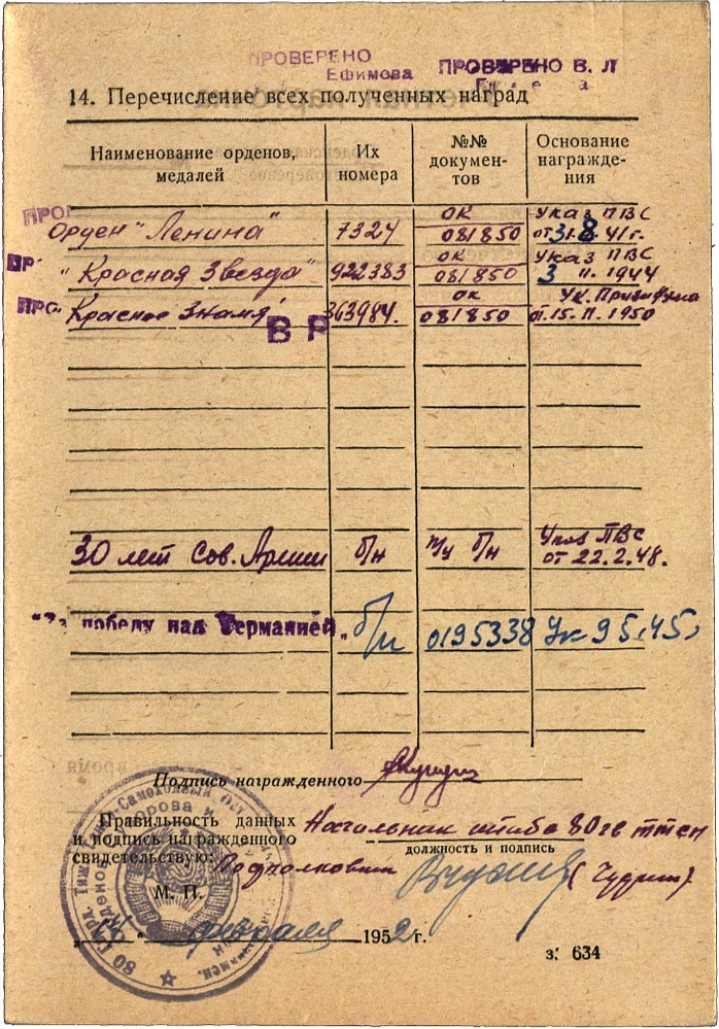 ПРОВЕРЕНО
Ефимова
ПРОВЕРЕНО В. Л
14. Перечисление всех полученных наград
Наименование орденов, медалей
Их номера
№№ документов
Основание награждения
ПРО
Орден "Ленина" 7324 ОК 081850 Указ ПВС от 31.8.41г.
ПР
"Красная Звезда" 922383 ОК 081850 Указ ПВС 3 11.1944
ПРО
"Красное Знамя" 363984. ОК 081850 от 15.11.1950
В Р
30 лет Сов. Армии б/н б/н Указ ПВС от 22.2.48.
"За победу над Германией" б/н 0195338 Ук 9 5.45
Подпись награжденного
Правильность данных
и подпись награжденного
свидетельствую:
Начальник штаба 80 гв ттсп
должность и подпись
Подполковник
М. П.
14 февраля 1952 г.
з. 634